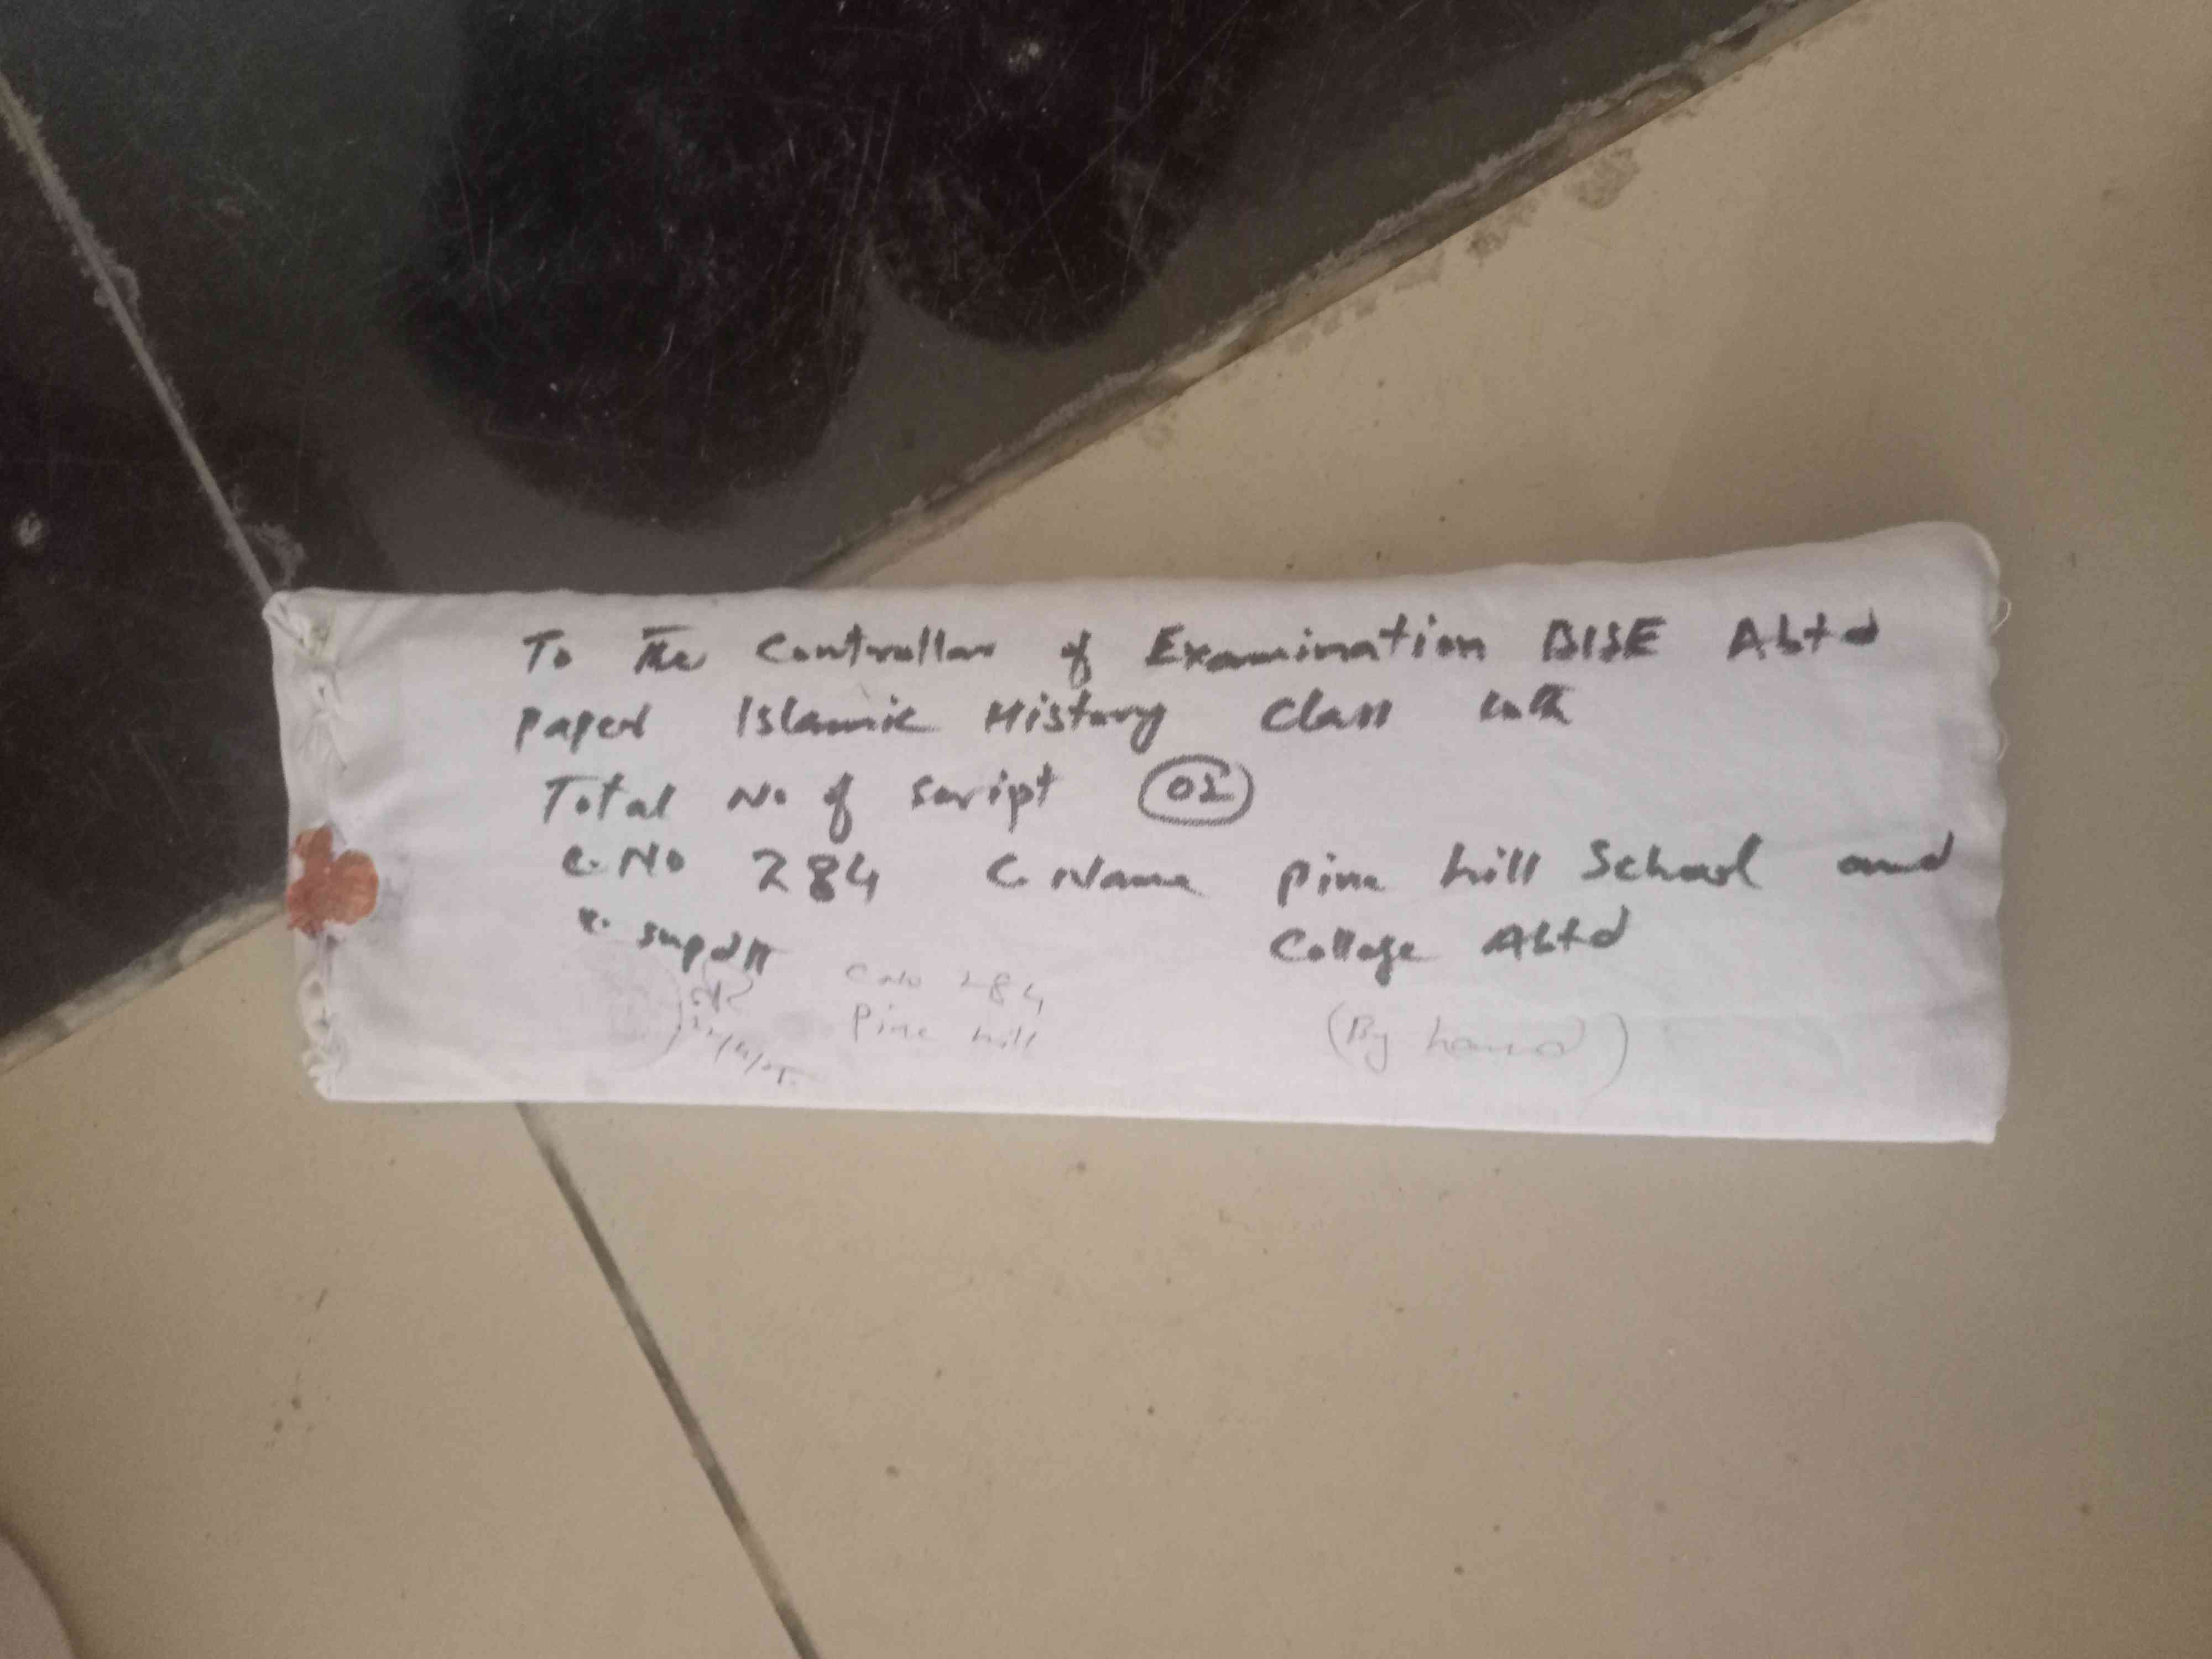 To The Controllar of Examination BISE Abtd
paper Islamic History Class
Total No of script
C. No 284 C. Name pine hill School and
College Abtd
C. supdtt
C.No 284
Pine hill
(By hand)